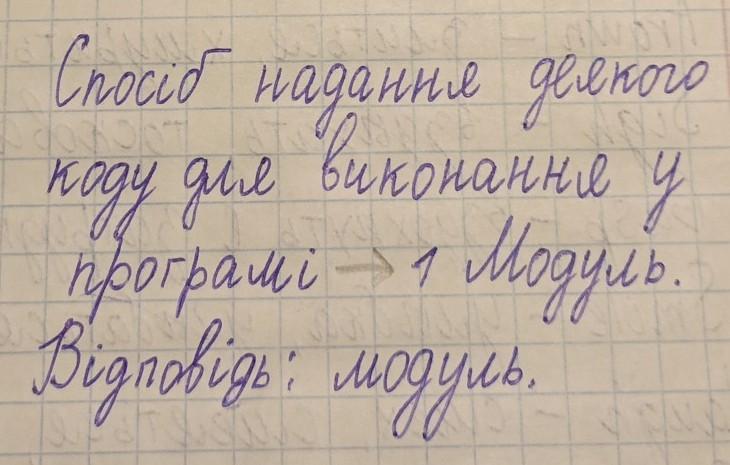 Спосіб надання деякого
коду для виконання у
програмі → 1 Модуль.
Відповідь: модуль.